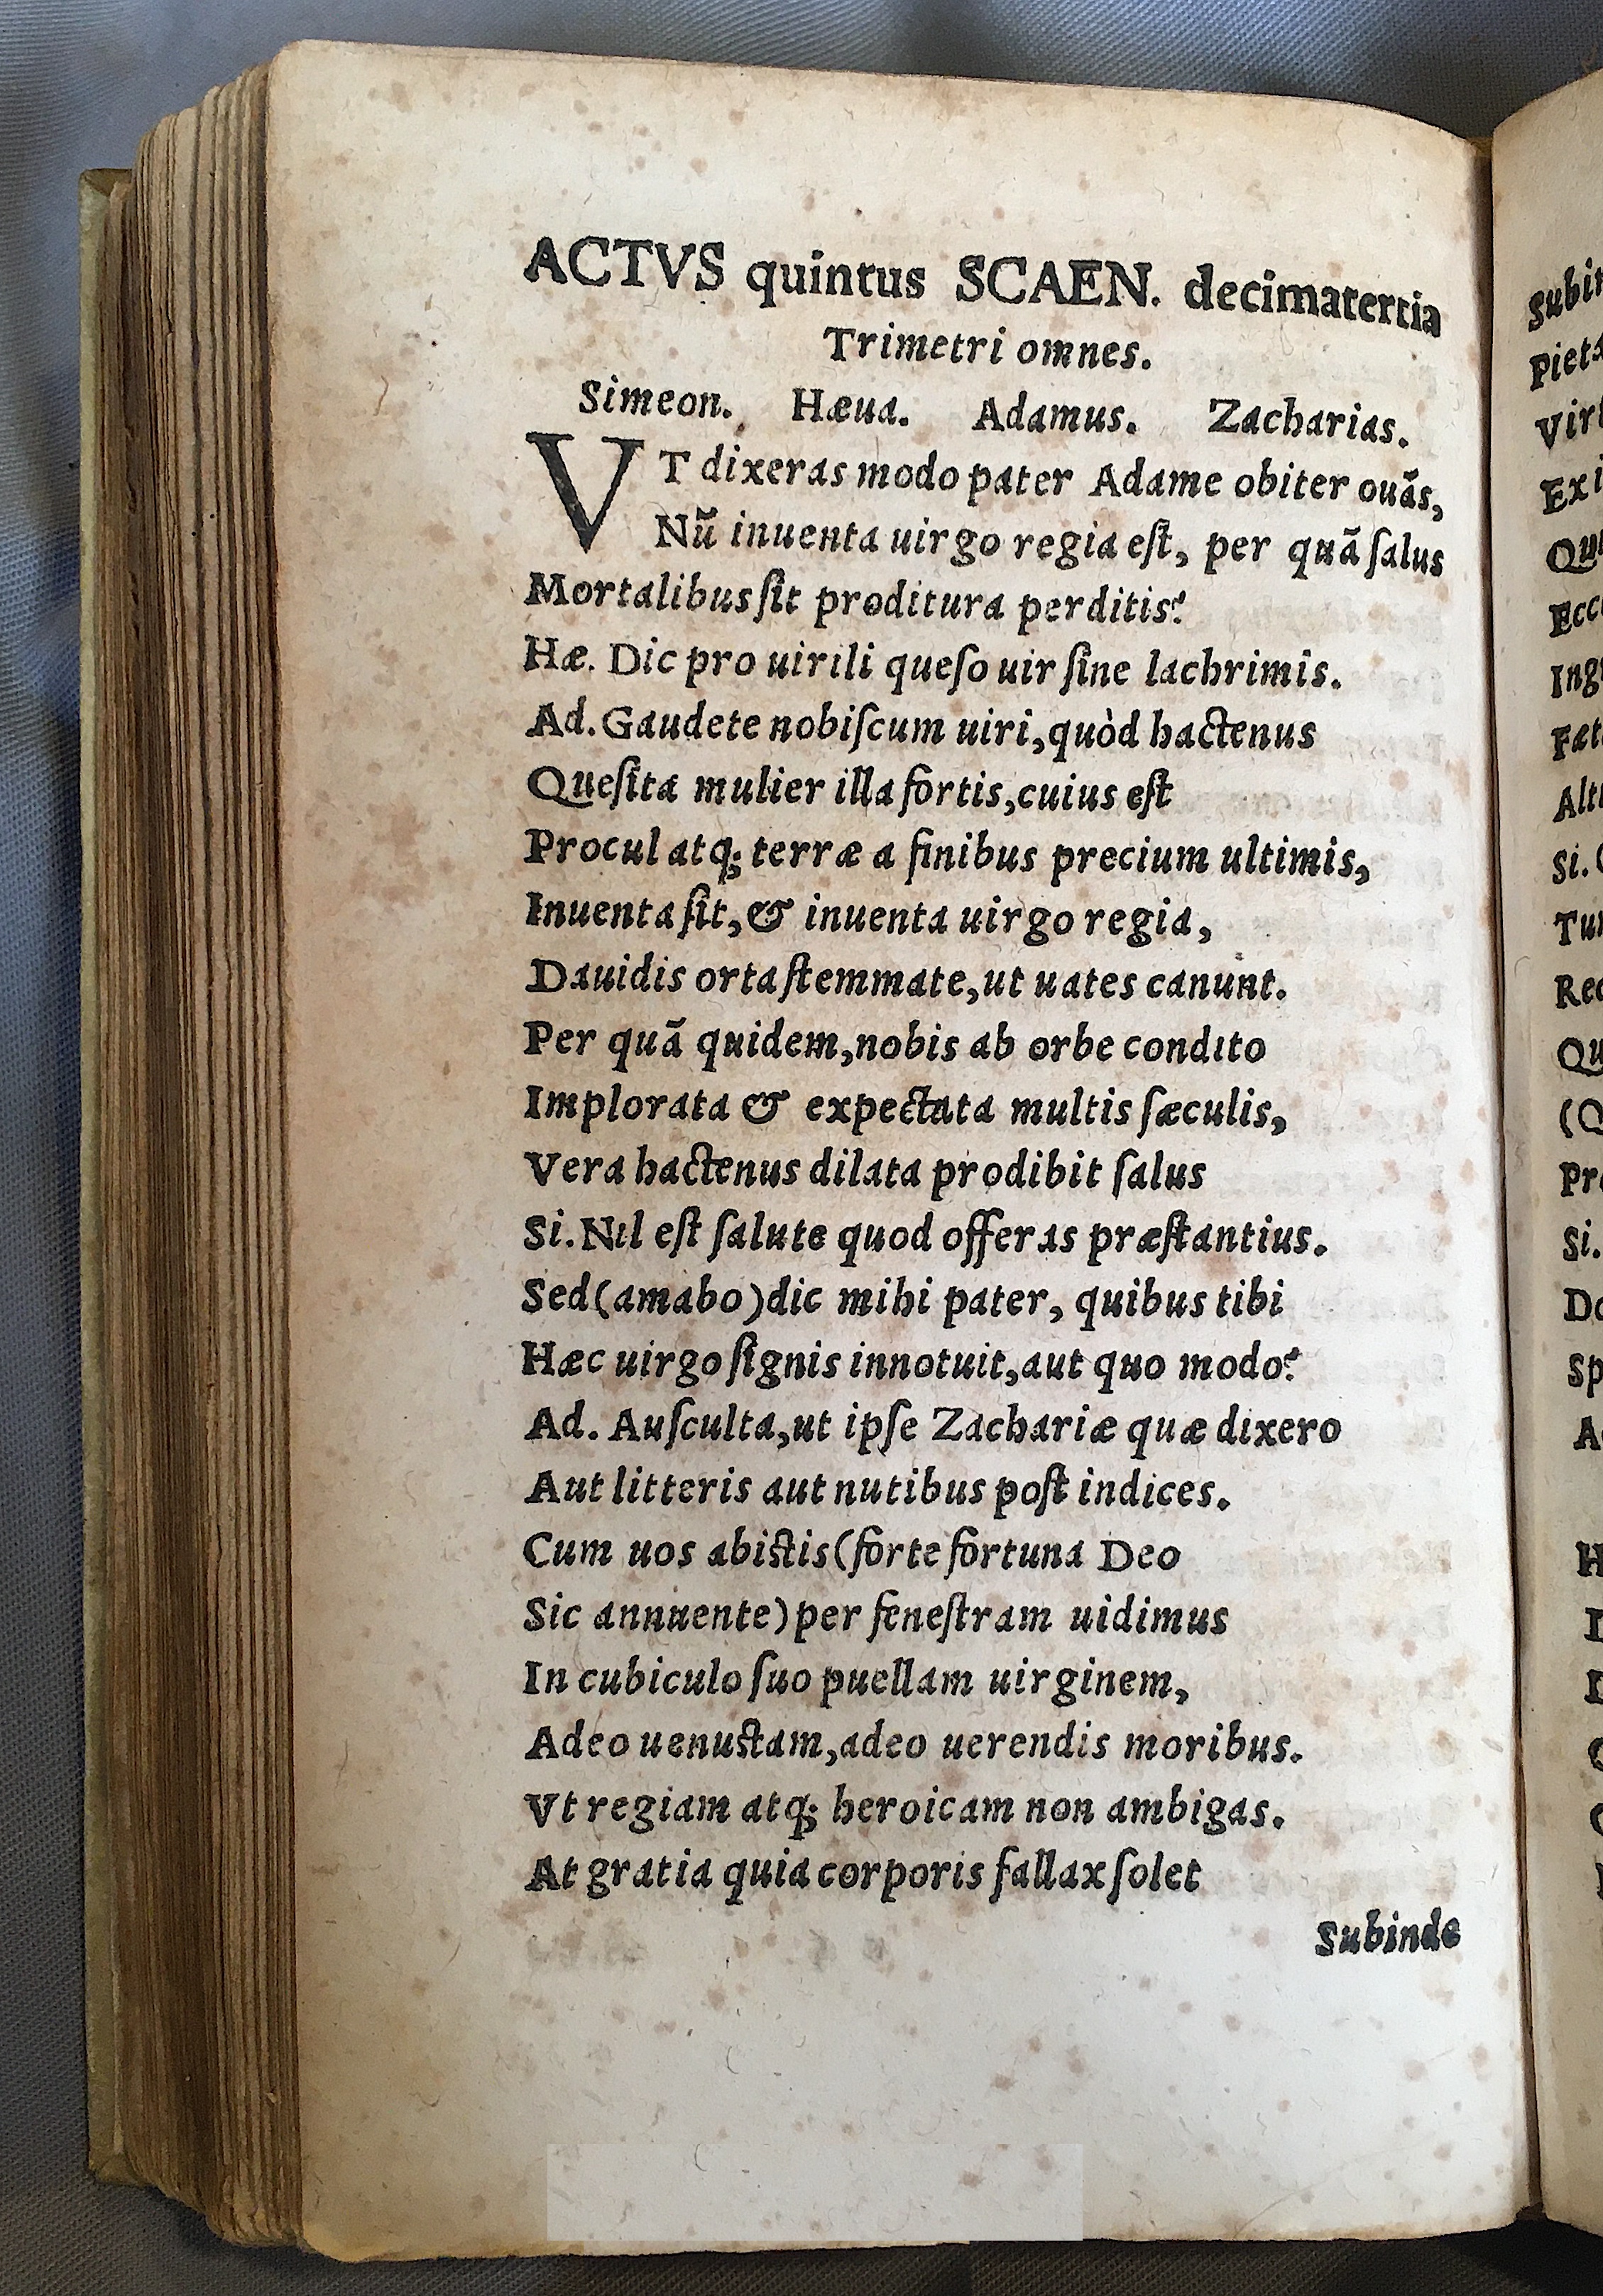 ACTVS quintus SCAEN. decimatertia
Trimetri omnes.
Simeon. Hæua. Adamus. Zacharias.
VT dixeras modo pater Adame obiter ouãs,
Nũ inuenta uirgo regia eſt, per quã ſalus
Mortalibus ſit proditura perditis?
Hæ. Dic pro uirili queſo uir ſine lachrimis.
Ad. Gaudete nobiſcum uiri, quòd hactenus
Queſita mulier illa fortis, cuius eſt
Procul atq; terræ a finibus precium ultimis,
Inuenta ſit, & inuenta uirgo regia,
Dauidis orta ſtemmate, ut uates canunt.
Per quã quidem, nobis ab orbe condito
Implorata & expectata multis ſæculis,
Vera hactenus dilata prodibit ſalus
Si. Nil eſt ſalute quod offeras præſtantius.
Sed (amabo) dic mihi pater, quibus tibi
Hæc uirgo ſignis innotuit, aut quo modo?
Ad. Auſculta, ut ipſe Zachariæ quæ dixero
Aut litteris aut nutibus poſt indices.
Cum uos abiſtis (forte fortuna Deo
Sic annuente) per feneſtram uidimus
In cubiculo ſuo puellam uirginem,
Adeo uenuſtam, adeo uerendis moribus.
Vt regiam atq; heroicam non ambigas.
At gratia quia corporis fallax ſolet
Subinde